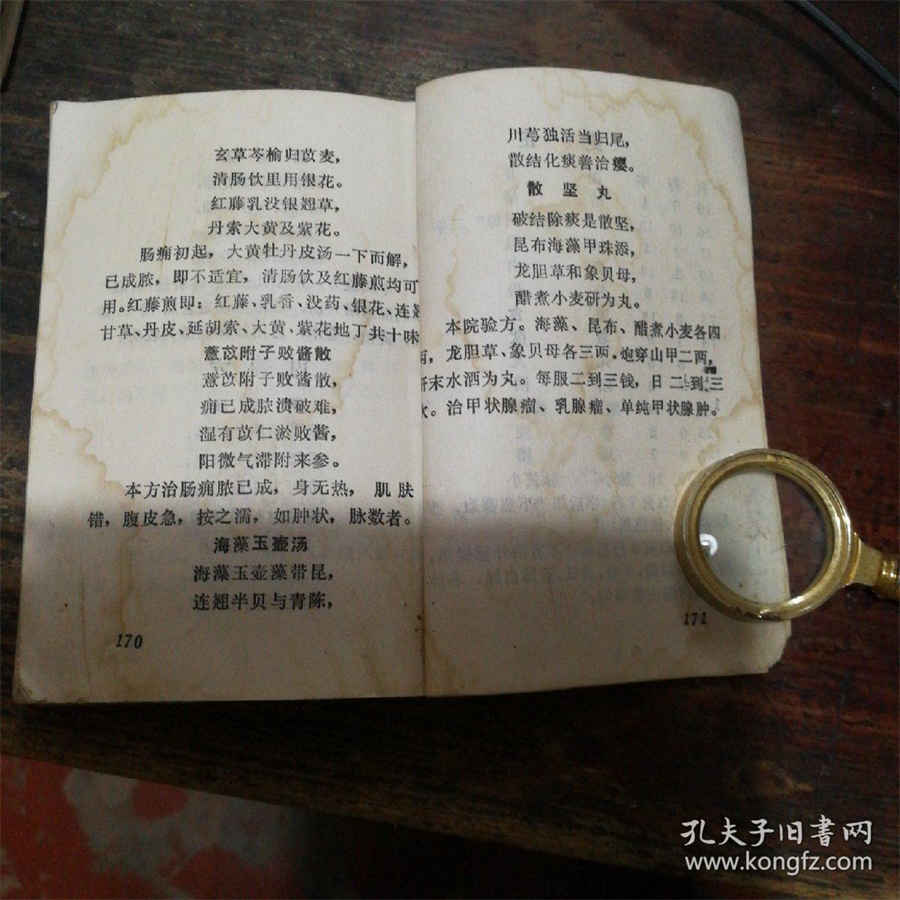 玄草芩榆归苡麦，
清肠饮里用银花。
红藤乳没银翘草，
丹索大黄及紫花。
肠痈初起，大黄牡丹皮汤一下而解，
已成脓，即不适宜，清肠饮及红藤煎均可
用。红藤煎即：红藤、乳香、没药、银花、连翘
甘草、丹皮、延胡索、大黄、紫花地丁共十味
薏苡附子败酱散
薏苡附子败酱散，
痈已成脓溃破难，
湿有苡仁淤败酱，
阳微气滞附来参。
本方治肠痈脓已成，身无热，肌肤
错，腹皮急，按之濡，如肿状，脉数者。
海藻玉壶汤
海藻玉壶藻带昆，
连翘半贝与青陈，
170
川芎独活当归尾，
散结化痰善治瘿。
散坚丸
破结除痰是散坚，
昆布海藻甲珠添，
龙胆草和象贝母，
醋煮小麦研为丸。
本院验方。海藻、昆布、醋煮小麦各四
两，龙胆草、象贝母各三两，炮穿山甲二两，
研末水洒为丸。每服二到三钱，日二到三
次。治甲状腺瘤、乳腺瘤、单纯甲状腺肿。
171
孔夫子旧书网
www.kongfz.com